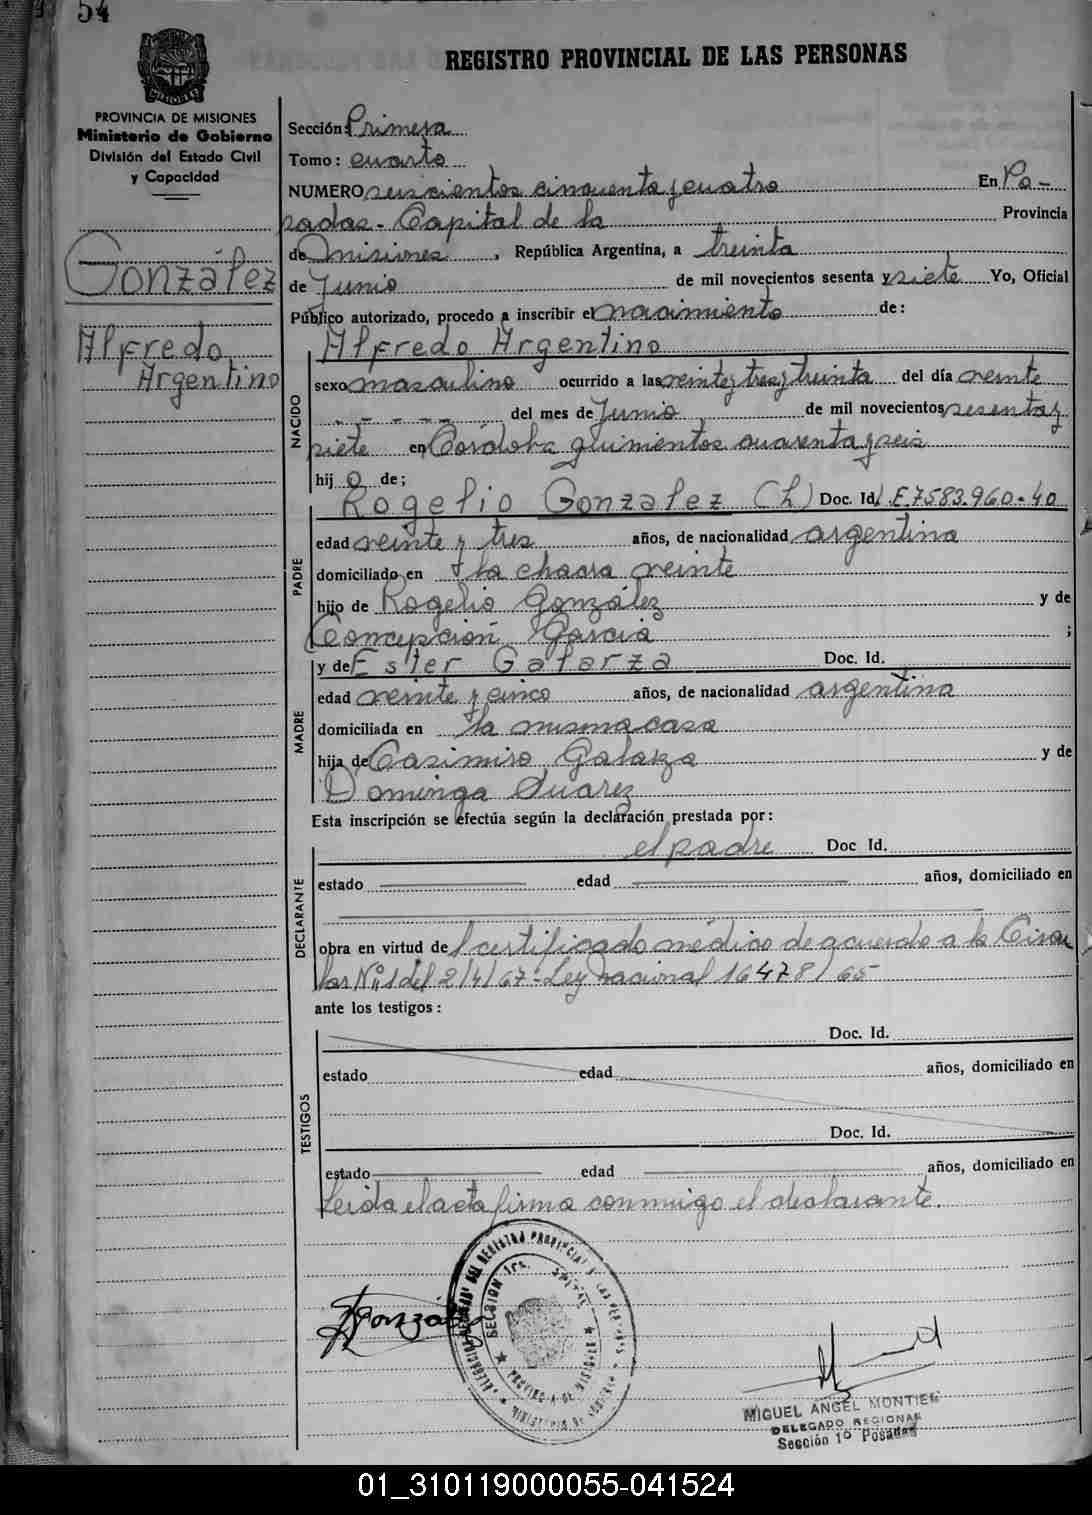 54
REGISTRO PROVINCIAL DE LAS PERSONAS
PROVINCIA DE MISIONES
Ministerio de Gobierno
División del Estado Civil
y Capacidad
González
Alfredo
Argentino
Sección: Primera
Tomo: cuarto
NUMERO seiscientos cincuenta y cuatro En Po-
sadas - Capital de la Provincia
de Misiones, República Argentina, a treinta
de Junio de mil novecientos sesenta y siete Yo, Oficial
Público autorizado, procedo a inscribir el nacimiento de:
NACIDO
Alfredo Argentino
sexo masculino ocurrido a las veinte y tres y treinta del día veinte
del mes de Junio de mil novecientos sesenta y
siete en Córdoba quinientos cuarenta y seis
hijo de;
PADRE
Rogelio González (h) Doc. Id. L.E. 7.583.960-40
edad veinte y tres años, de nacionalidad argentina
domiciliado en la chacra veinte
hijo de Rogelio González y de
Concepción García ;
MADRE
y de Ester Galarza Doc. Id.
edad veinte y cinco años, de nacionalidad argentina
domiciliada en la misma casa
hija de Casimiro Galarza y de
Dominga Suarez
Esta inscripción se efectúa según la declaración prestada por:
DECLARANTE
el padre Doc Id.
estado edad años, domiciliado en
obra en virtud del certificado médico de acuerdo a la Circu
lar Nº 1 del 2/4/67 - Ley nacional 16478/65
ante los testigos:
TESTIGOS
Doc. Id.
estado edad años, domiciliado en
Doc. Id.
estado edad años, domiciliado en
Leída el acta firma conmigo el declarante.
González
DEL REGISTRO PROVINCIAL DE LAS PERSONAS
SECCION 1ra. CAPITAL
PROVINCIA DE MISIONES
MINISTERIO DE GOBIERNO
MIGUEL ANGEL MONTIEL
DELEGADO REGIONAL
Sección 1º Posadas
01_310119000055-041524